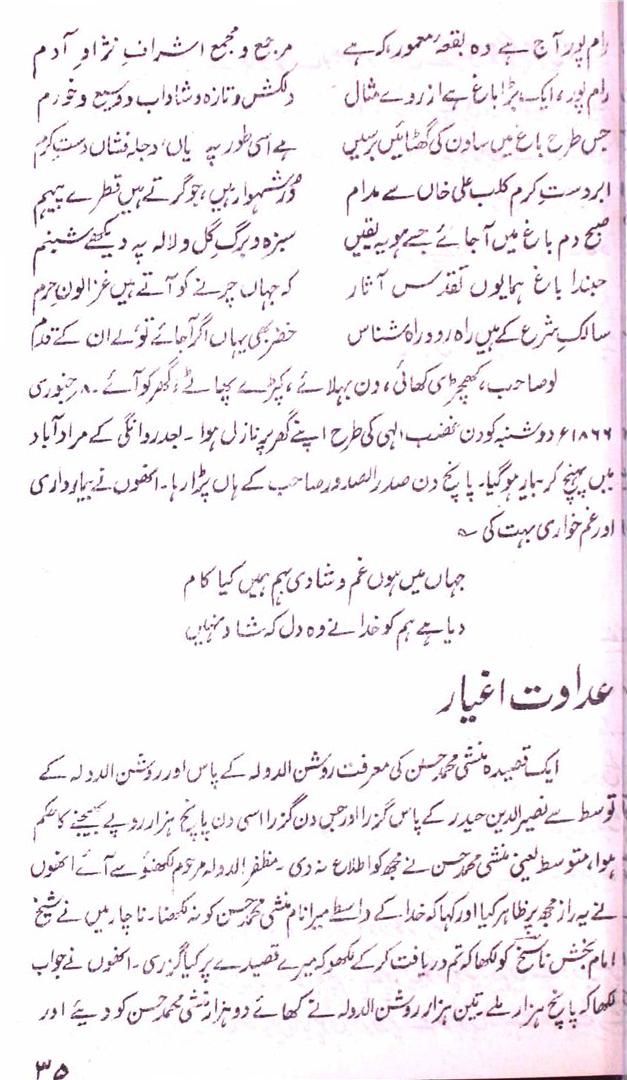 رام پور آج ہے وہ بقعہ معمور، کہ ہے مرجع و مجمع اشرافِ نژادِ آدم
رام پور، ایک بڑا باغ ہے از روے مثال دلکش و تازہ و شاداب و وسیع و خورم
جس طرح باغ میں ساون کی گھٹائیں برسیں ہے اسی طور پہ یاں دجلہ فشاں دستِ کرم
ابر دستِ کرم کلب علی خاں سے مدام دُرِّ شہوار ہیں، جو گرتے ہیں قطرے پیہم
صبح دم باغ میں آجائے جسے ہو نہ یقیں سبزہ و برگِ گل و لالہ پہ دیکھے شبنم
حبّذا باغ ہمایوں تقدس آثار کہ جہاں چرنے کو آتے ہیں غزالونِ حرم
سالکِ شرع کے ہیں راہ رو و راہ شناس خضر بھی یہاں اگر آجائے تو لے ان کے قدم
لو صاحب، کھچڑی کھائی، دن بہلائے، کپڑے پھاٹے، گھر کو آئے۔ ۸ر جنوری
۱۸۶۶ء دوشنبہ کو دن غضب الٰہی کی طرح اپنے گھر پر نازل ہوا۔ بعد روانگی کے مرادآباد
میں پہنچ کر بیمار ہوگیا۔ پانچ دن صدر الصدور صاحب کے ہاں پڑا رہا۔ انھوں نے بیمارداری
اور غم خواری بہت کی ؎
جہاں میں ہوں غم و شادی بہم ہمیں کیا کام
دیا ہے ہم کو خدا نے وہ دل کہ شاد نہیں
عداوت اغیار
ایک قصیدہ منشی محمد حسن کی معرفت روشن الدولہ کے پاس اور روشن الدولہ کے
توسط سے نصیر الدین حیدر کے پاس گزرا اور جس دن گزرا اسی دن پانچ ہزار روپے بھیجنے کا حکم
ہوا، متوسط یعنی منشی محمد حسن نے مجھ کو اطلاع نہ دی۔ مظفر الدولہ مرحوم لکھنؤ سے آئے انھوں
نے یہ راز مجھ پر ظاہر کیا اور کہا کہ خدا کے واسطے میرا نام منشی محمد حسن کو نہ لکھنا۔ ناچار میں نے شیخ
امام بخش ناسخؔ کو لکھا کہ تم دریافت کرکے لکھو کہ میرے قصیدے پر کیا گزری۔ انھوں نے جواب
لکھا کہ پانچ ہزار ملے۔ تین ہزار روشن الدولہ نے کھائے دو ہزار منشی محمد حسن کو دیئے اور
۳۵